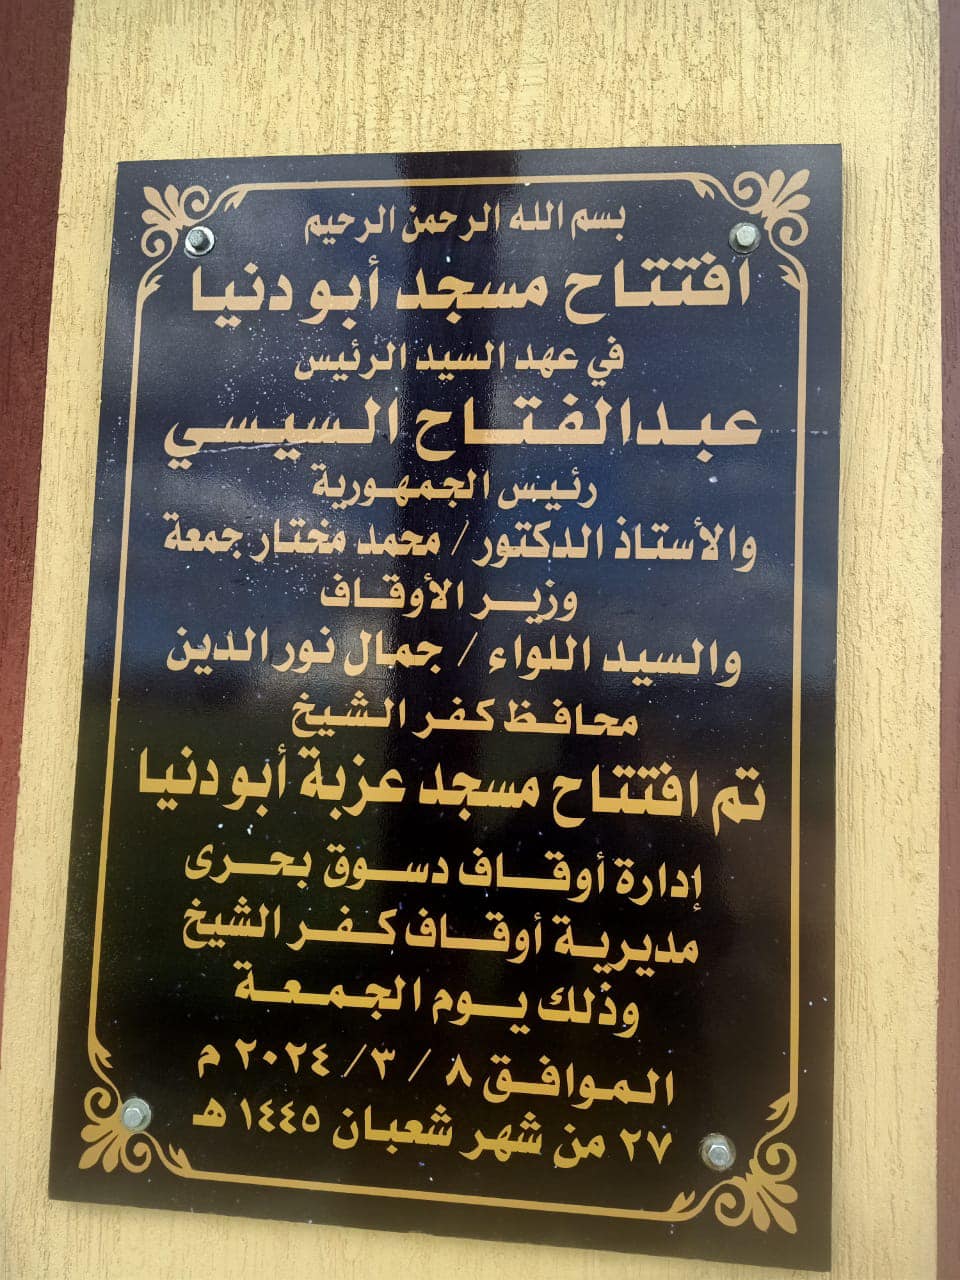 بسم الله الرحمن الرحيم
افتتاح مسجد أبو دنيا
في عهد السيد الرئيس
عبدالفتاح السيسي
رئيس الجمهورية
والأستاذ الدكتور / محمد مختار جمعة
وزير الأوقاف
والسيد اللواء / جمال نور الدين
محافظ كفر الشيخ
تم افتتاح مسجد عزبة أبو دنيا
إدارة أوقاف دسوق بحرى
مديرية أوقاف كفر الشيخ
وذلك يوم الجمعة
الموافق ٨ / ٣ / ٢٠٢٤ م
٢٧ من شهر شعبان ١٤٤٥ هـ